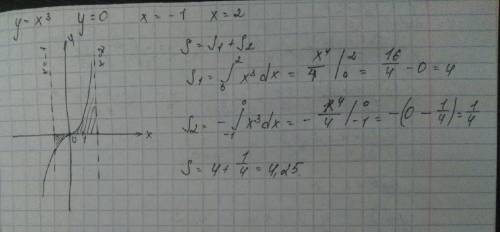 y = x³  y = 0  x = -1  x = 2
S = S₁ + S₂
S₁ = ∫₀² x³ dx = x⁴/4 |₀² = 16/4 - 0 = 4
S₂ = -∫₋₁⁰ x³ dx = - x⁴/4 |₋₁⁰ = -(0 - 1/4) = 1/4
S = 4 + 1/4 = 4,25
x = -1
y
x = 2
0 1
x